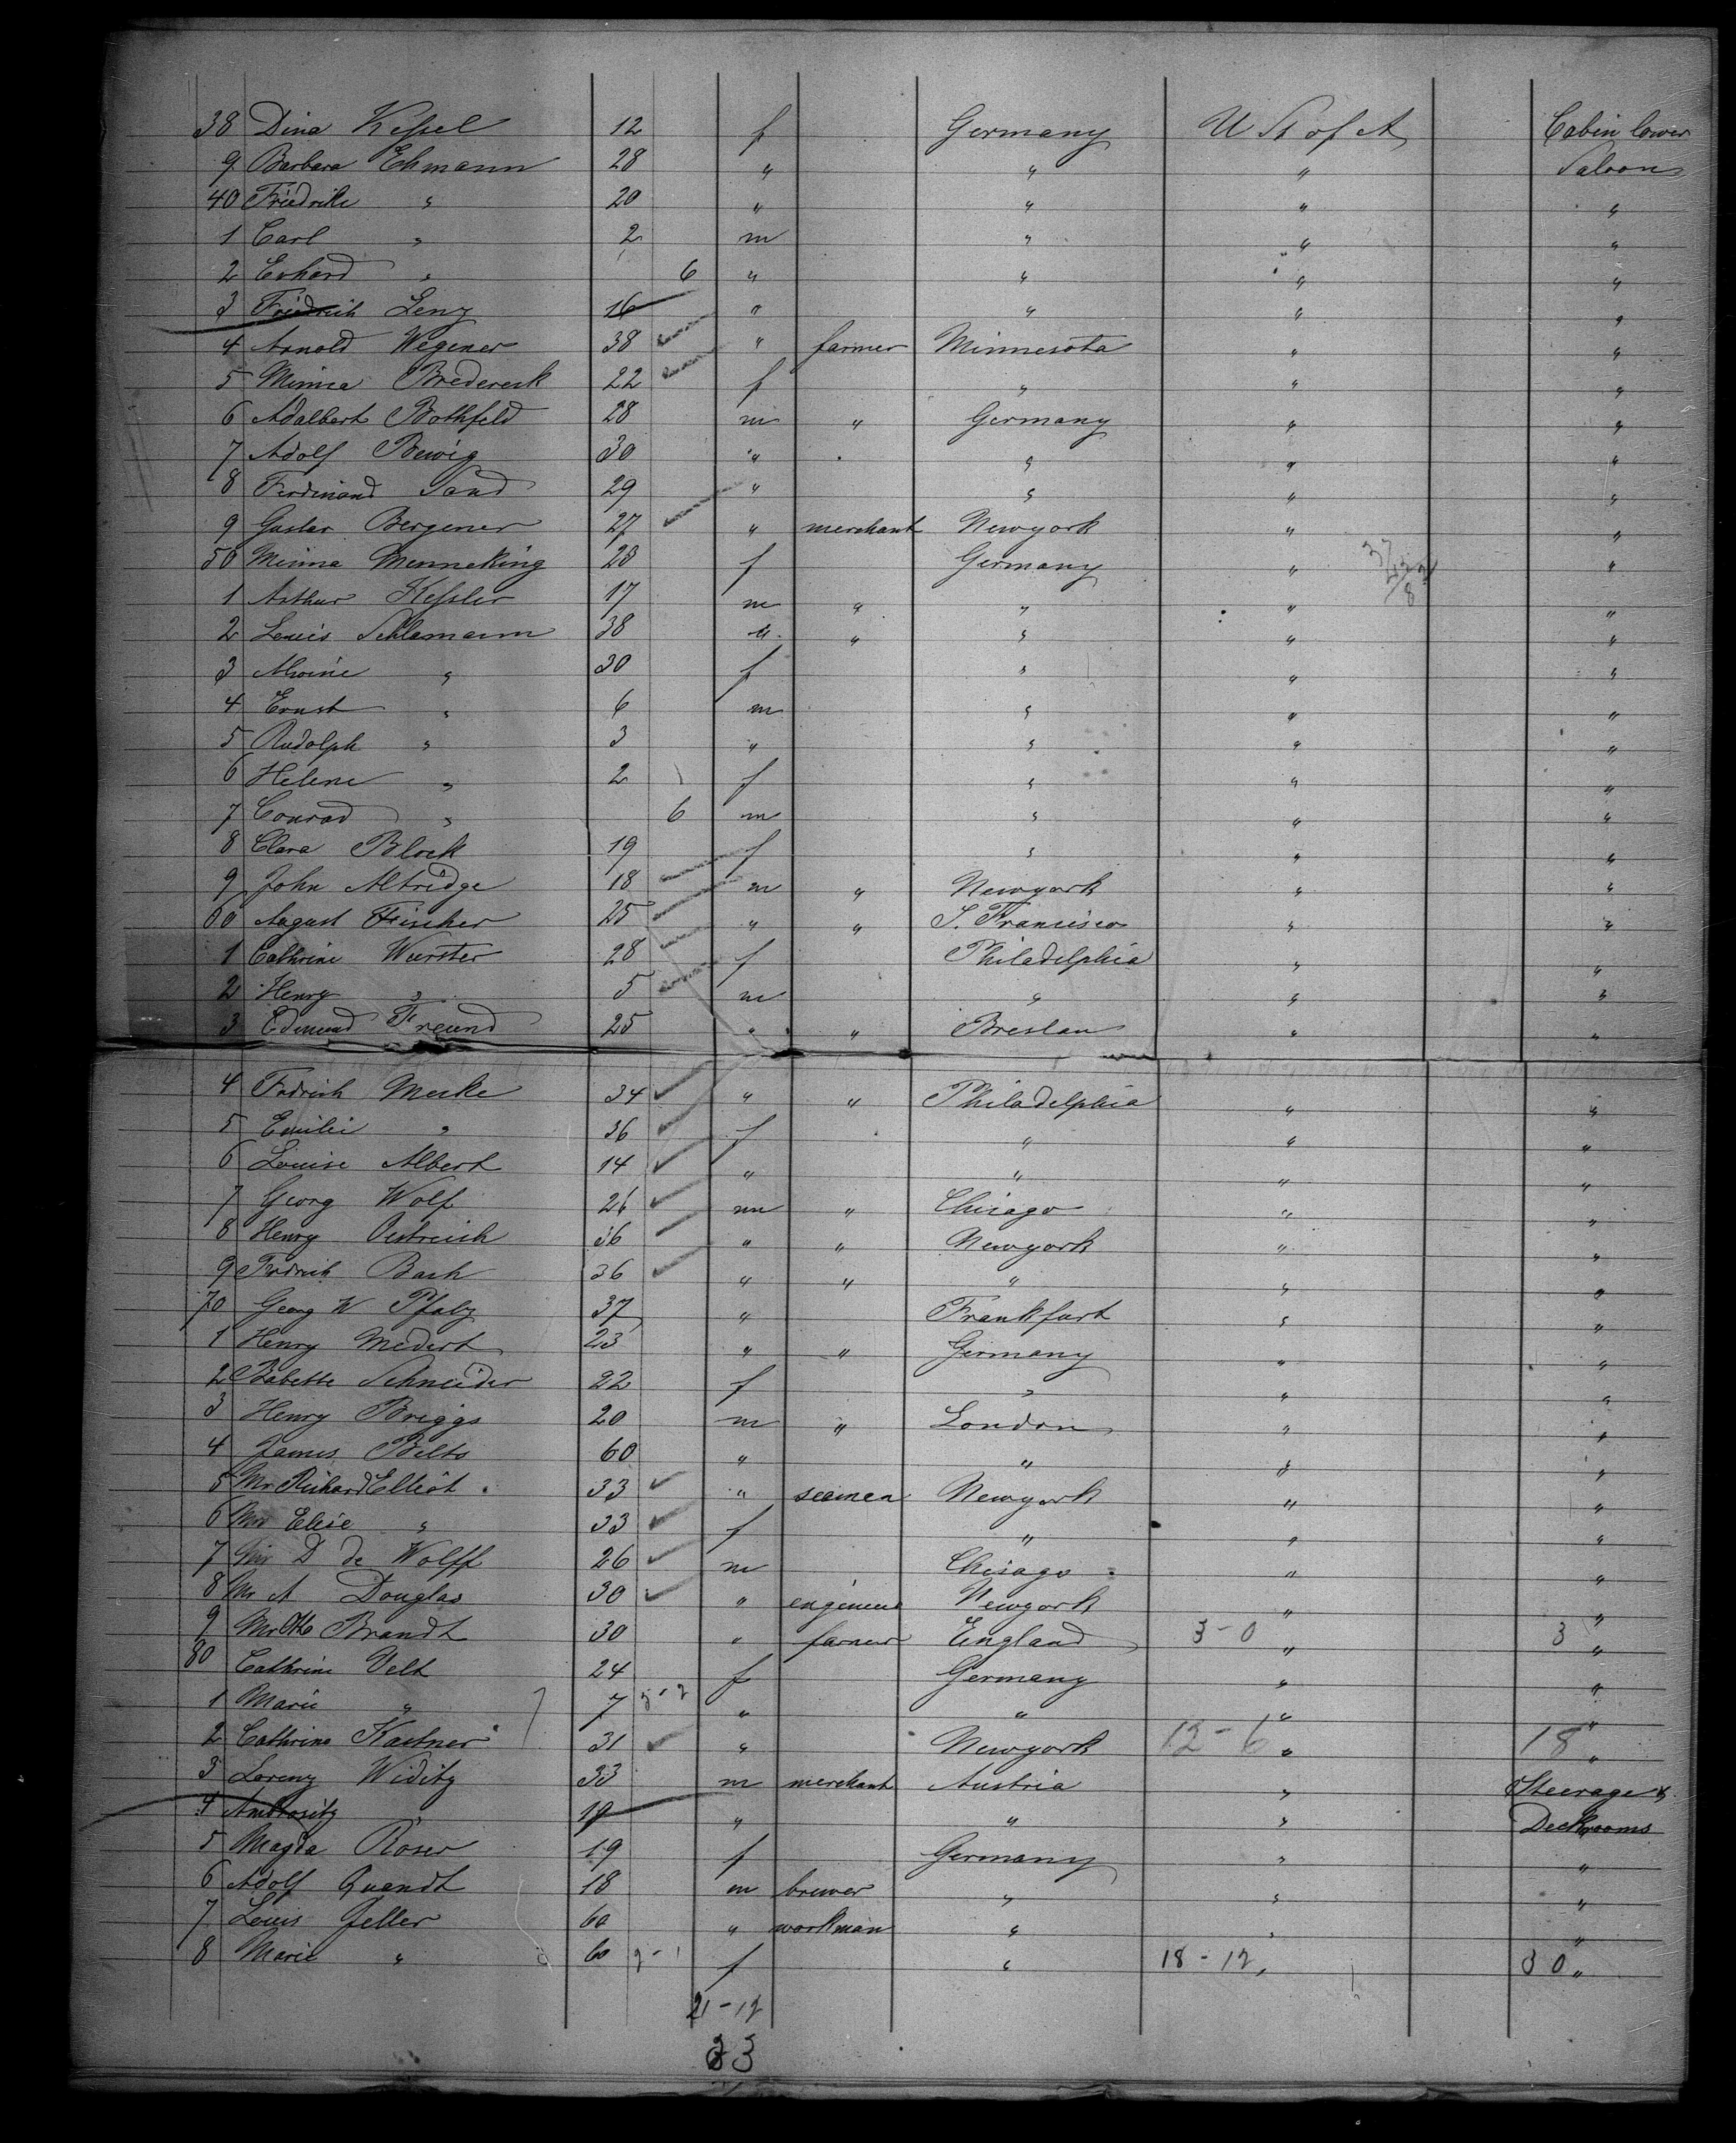 38 Dina Keſsel 12 f Germany U St of A Cabin lower
9 Barbara Ehmann 28 " " " Saloon
40 Friedrike " 20 " " " "
1 Carl " 2 m " " "
2 Erhard " 6 " " " "
3 Friedrich Lenz 16 " " " "
4 Arnold Wegener 38 " farmer Minnesota " "
5 Minna Brederek 22 f " " "
6 Adalbert Bothfeld 28 m " Germany " "
7 Adolf Bewig 30 " " " "
8 Ferdinand Sand 29 " " " "
9 Gustav Bergener 27 " merchant Newyork " "
50 Minna Menneking 23 f Germany " "
1 Arthur Keſsler 17 m " " " "
2 Louis Schlamann 38 " " " " "
3 Alwine " 30 f " " "
4 Ernst " 6 m " " "
5 Rudolph " 3 " " " "
6 Helene " 2 f " " "
7 Conrad " 6 m " " "
8 Clara Block 19 f " " "
9 John Altridge 18 m " Newyork " "
60 August Fischer 25 " " S. Francisco " "
1 Cathrine Wurster 28 f Philadelphia " "
2 Henry " 5 m " " "
3 Edmund Freund 25 " " Breslau " "
4 Fridrich Merke 34 " " Philadelphia " "
5 Emilie " 36 f " " "
6 Louise Albert 14 " " " "
7 Georg Wolf 26 m " Chicago " "
8 Henry Oestreich 36 " " Newyork " "
9 Fridrich Bach 36 " " " " "
70 Georg W Pfalz 37 " Frankfurt " "
1 Henry Medert 23 " " Germany " "
2 Babette Schneider 22 f " " "
3 Henry Briggs 20 m " London " "
4 James Belts 60 " " " "
5 Mr Richard Elliot 33 " seeman Newyork " "
6 Mrs Elise " 33 f " " "
7 Mr D de Wolff 26 m Chicago " "
8 Mr A Douglas 30 " engineer Newyork " "
9 Mr Otto Brandt 30 " farmer England 3-0 " 3 "
80 Cathrine Velt 24 f Germany " "
1 Marie " 7 " " " "
2 Cathrine Kastner 31 " Newyork 12-6 " 18 "
3 Lorenz Widitz 33 m merchant Austria " Steerage &
4 " 19 " " " Deckrooms
5 Magda Röser 19 f Germany " "
6 Adolf Quandt 18 m brewer " " "
7 Louis Zeller 60 " workman " " "
8 Marie " 60 2-1 f " 18-12 " 30 "
21-12
33